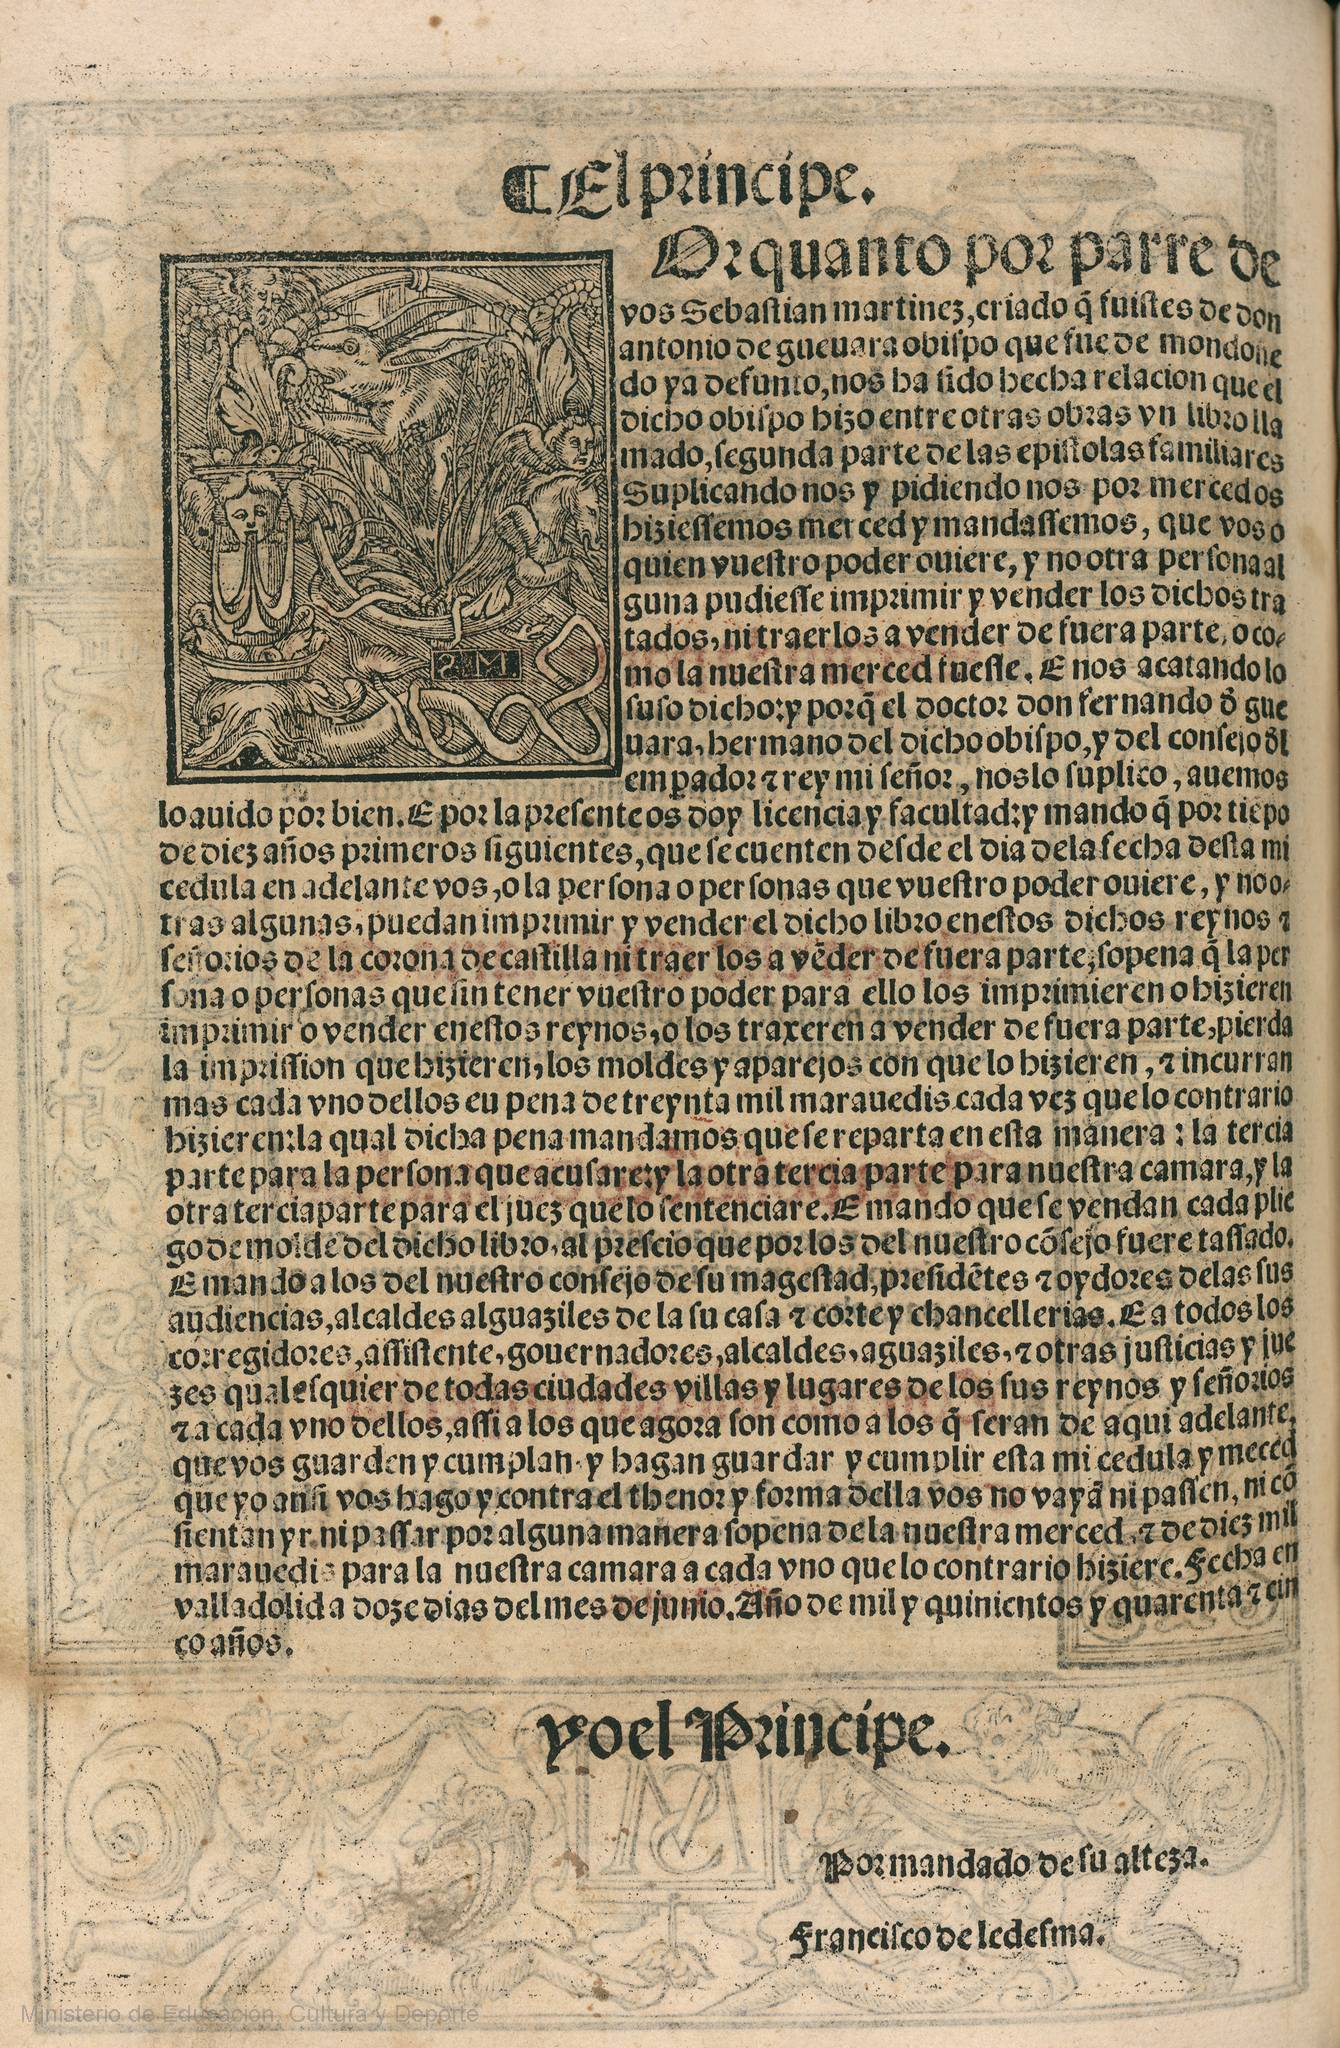 ¶ El principe.
Orquanto por parte de
vos Sebastian martinez, criado q̃ fuistes de don
antonio de gueuara obispo que fue de mondoñe
do ya defunto, nos ha sido hecha relacion que el
dicho obispo hizo entre otras obras vn libro lla
mado, segunda parte de las epistolas familiares
Suplicando nos y pidiendo nos por merced os
hiziessemos merced y mandassemos, que vos o
quien vuestro poder ouiere, y no otra persona al
guna pudiesse imprimir y vender los dichos tra
tados, ni traerlos a vender de fuera parte, o co-
mo la nuestra merced fuesse. E nos acatando lo
suso dicho: y porq̃ el doctor don fernando d̃ gue
uara, hermano del dicho obispo, y del consejo d̃l
emp̱ador ⁊ rey mi señor, nos lo suplico, auemos
S M
lo auido por bien. E por la presente os doy licencia y facultad: y mando q̃ por tiẽpo
de diez años primeros siguientes, que se cuenten desde el dia dela fecha desta mi
cedula en adelante vos, o la persona o personas que vuestro poder ouiere, y no o-
tras algunas, puedan imprimir y vender el dicho libro enestos dichos reynos ⁊
señorios de la corona de castilla ni traer los a vẽder de fuera parte, sopena q̃ la per
sona o personas que sin tener vuestro poder para ello los imprimieren o hizieren
imprimir o vender enestos reynos, o los traxeren a vender de fuera parte, pierda
la impression que hizieren, los moldes y aparejos con que lo hizieren, ⁊ incurran
mas cada vno dellos eu pena de treynta mil marauedis cada vez que lo contrario
hizieren: la qual dicha pena mandamos que se reparta en esta manera: la tercia
parte para la persona que acusare: y la otra tercia parte para nuestra camara, y la
otra tercia parte para el juez que lo sentenciare. E mando que se vendan cada plie
go de molde del dicho libro, al prescio que por los del nuestro cõsejo fuere tassado.
E mando a los del nuestro consejo de su magestad, presidẽtes ⁊ oydores delas sus
audiencias, alcaldes alguaziles de la su casa ⁊ corte y chancellerias. E a todos los
corregidores, assistente, gouernadores, alcaldes, aguaziles, ⁊ otras justicias y jue
zes qualesquier de todas ciudades villas y lugares de los sus reynos y señorios
⁊ a cada vno dellos, assi a los que agora son como a los q̃ seran de aqui adelante,
que vos guarden y cumplan y hagan guardar y cumplir esta mi cedula y merced
que yo ansi vos hago y contra el thenor y forma della vos no vayã ni passen, ni cõ
sientan yr ni passar por alguna manera sopena dela nuestra merced, ⁊ de diez mil
marauedis para la nuestra camara a cada vno que lo contrario hiziere. Fecha en
valladolid a doze dias del mes de junio. Año de mil y quinientos y quarenta ⁊ cin
co años.
yo el Principe.
Por mandado de su alteza.
Francisco de ledesma.
Ministerio de Educación, Cultura y Deporte